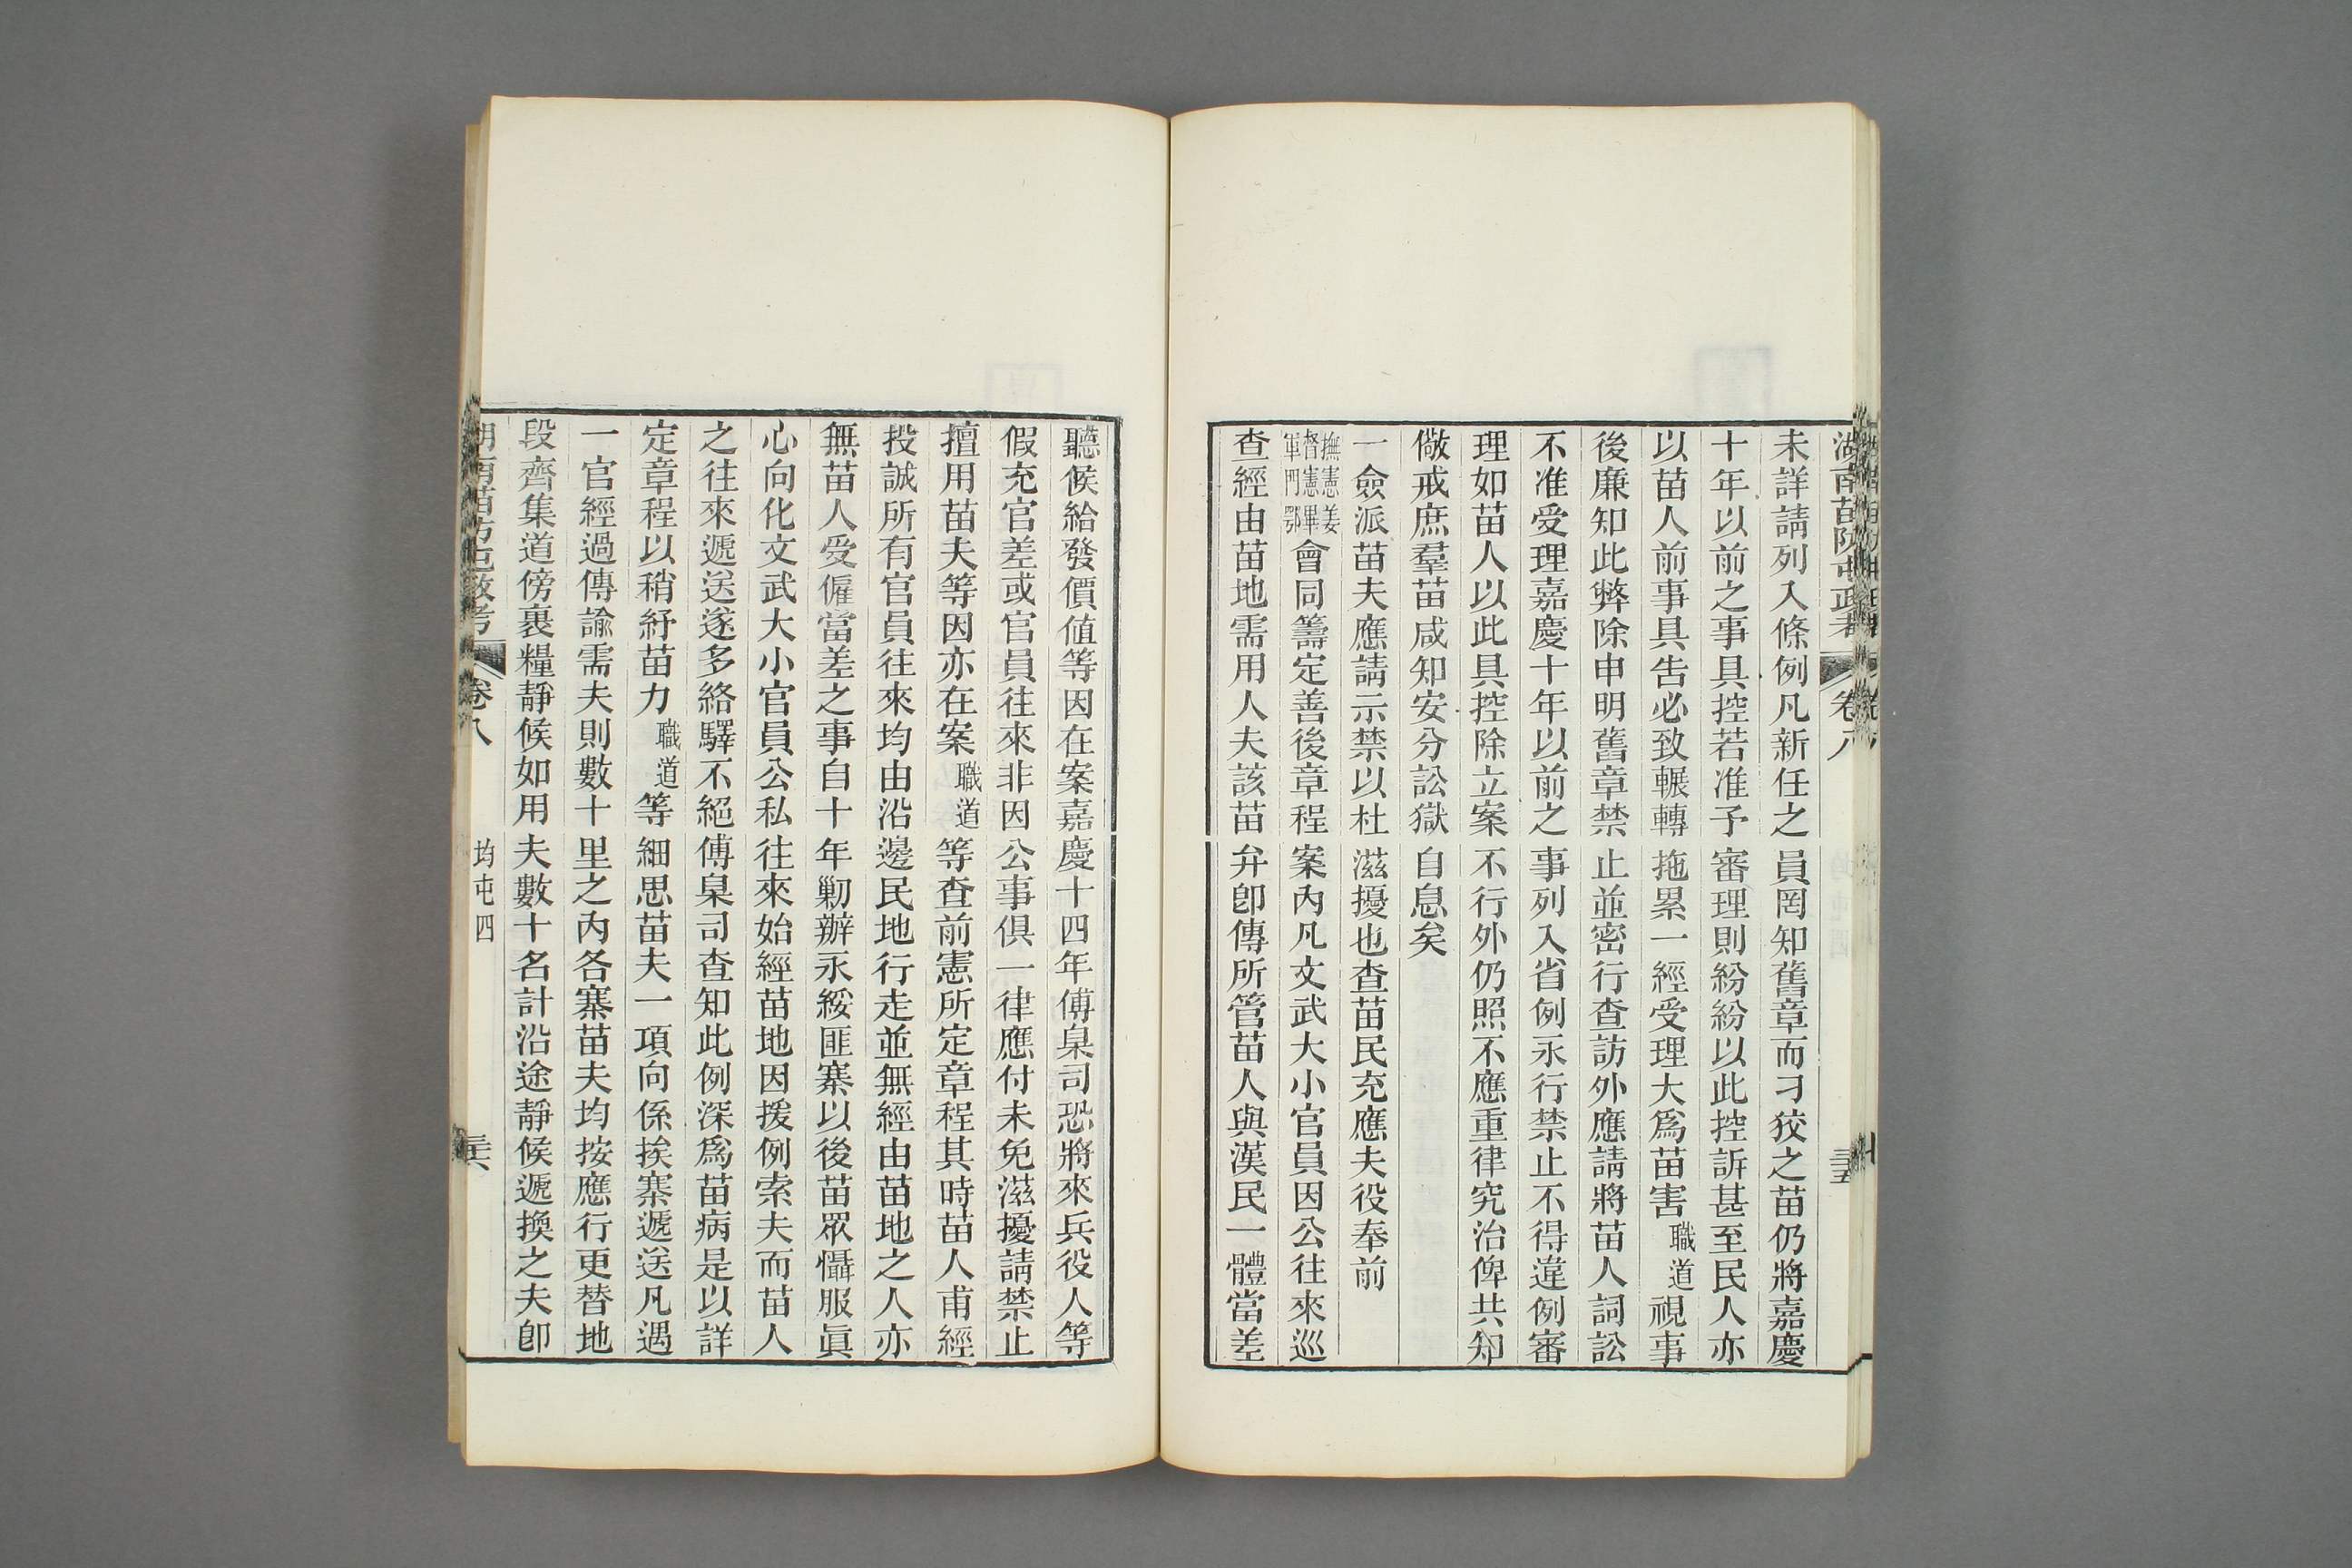 湖南苗防屯政考 卷八 三五
未詳請列入條例凡新任之員罔知舊章而刁狡之苗仍將嘉慶
十年以前之事具控若准予審理則紛紛以此控訴甚至民人亦
以苗人前事具告必致輾轉拖累一經受理大爲苗害職道視事
後廉知此弊除申明舊章禁止並密行查訪外應請將苗人詞訟
不准受理嘉慶十年以前之事列入省例永行禁止不得違例審
理如苗人以此具控除立案不行外仍照不應重律究治俾共知
儆戒庶羣苗咸知安分訟獄自息矣
一僉派苗夫應請示禁以杜滋擾也查苗民充應夫役奉前
撫憲姜督憲畢軍門鄂會同籌定善後章程案內凡文武大小官員因公往來巡
查經由苗地需用人夫該苗弁卽傳所管苗人與漢民一體當差
聽候給發價値等因在案嘉慶十四年傅臬司恐將來兵役人等
假充官差或官員往來非因公事俱一律應付未免滋擾請禁止
擅用苗夫等因亦在案職道等查前憲所定章程其時苗人甫經
投誠所有官員往來均由沿邊民地行走並無經由苗地之人亦
無苗人受僱當差之事自十年勦辦永綏匪寨以後苗眾懾服眞
心向化文武大小官員公私往來始經苗地因援例索夫而苗人
之往來遞送遂多絡驛不絕傅臬司查知此例深爲苗病是以詳
定章程以稍紓苗力職道等細思苗夫一項向係挨寨遞送凡遇
一官經過傳諭需夫則數十里之內各寨苗夫均按應行更替地
段齊集道傍裹糧靜候如用夫數十名計沿途靜候遞換之夫卽
湖南苗防屯政考 卷八 均屯四 三六